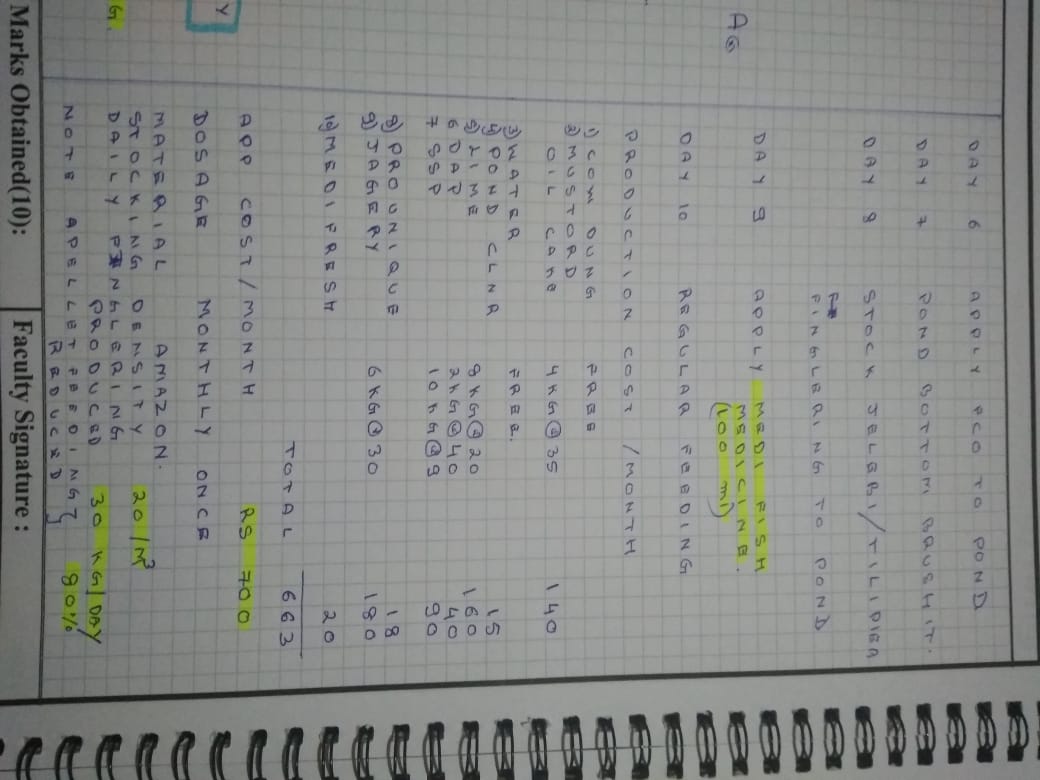 DAY 6 APPLY PCO TO POND
DAY 7 POND BOTTOM BRUSHIT.
DAY 8 STOCK JELEBI/TILIPIEA
FINGLERING TO POND
DAY 9 APPLY MEDI FISH
MEDICINE.
(100 ml)
DAY 10 REGULAR FEEDING
PRODUCTION COST /MONTH
1) COW DUNG FREE
2) MUSTORD
OIL CAKE 4KG@35 140
3) WATER FREE.
4) POND CLNR 15
5) LIME 8KG@20 160
6 DAP 2KG@40 40
7 SSP 10KG@9 90
8) PROUNIQUE 18
9) JAGERY 6KG@30 180
10) MEDIFRESH 20
TOTAL 663
APP COST/MONTH RS 700
DOSAGE MONTHLY ONCE
MATERIAL AMAZON.
STOCKING DENSITY 20/M³
DAILY FINGLERING
PRODUCED 30 KG/DAY
NOTE APELLET FEEDING } 80%
REDUCED
Y
G.
Marks Obtained(10): Faculty Signature :